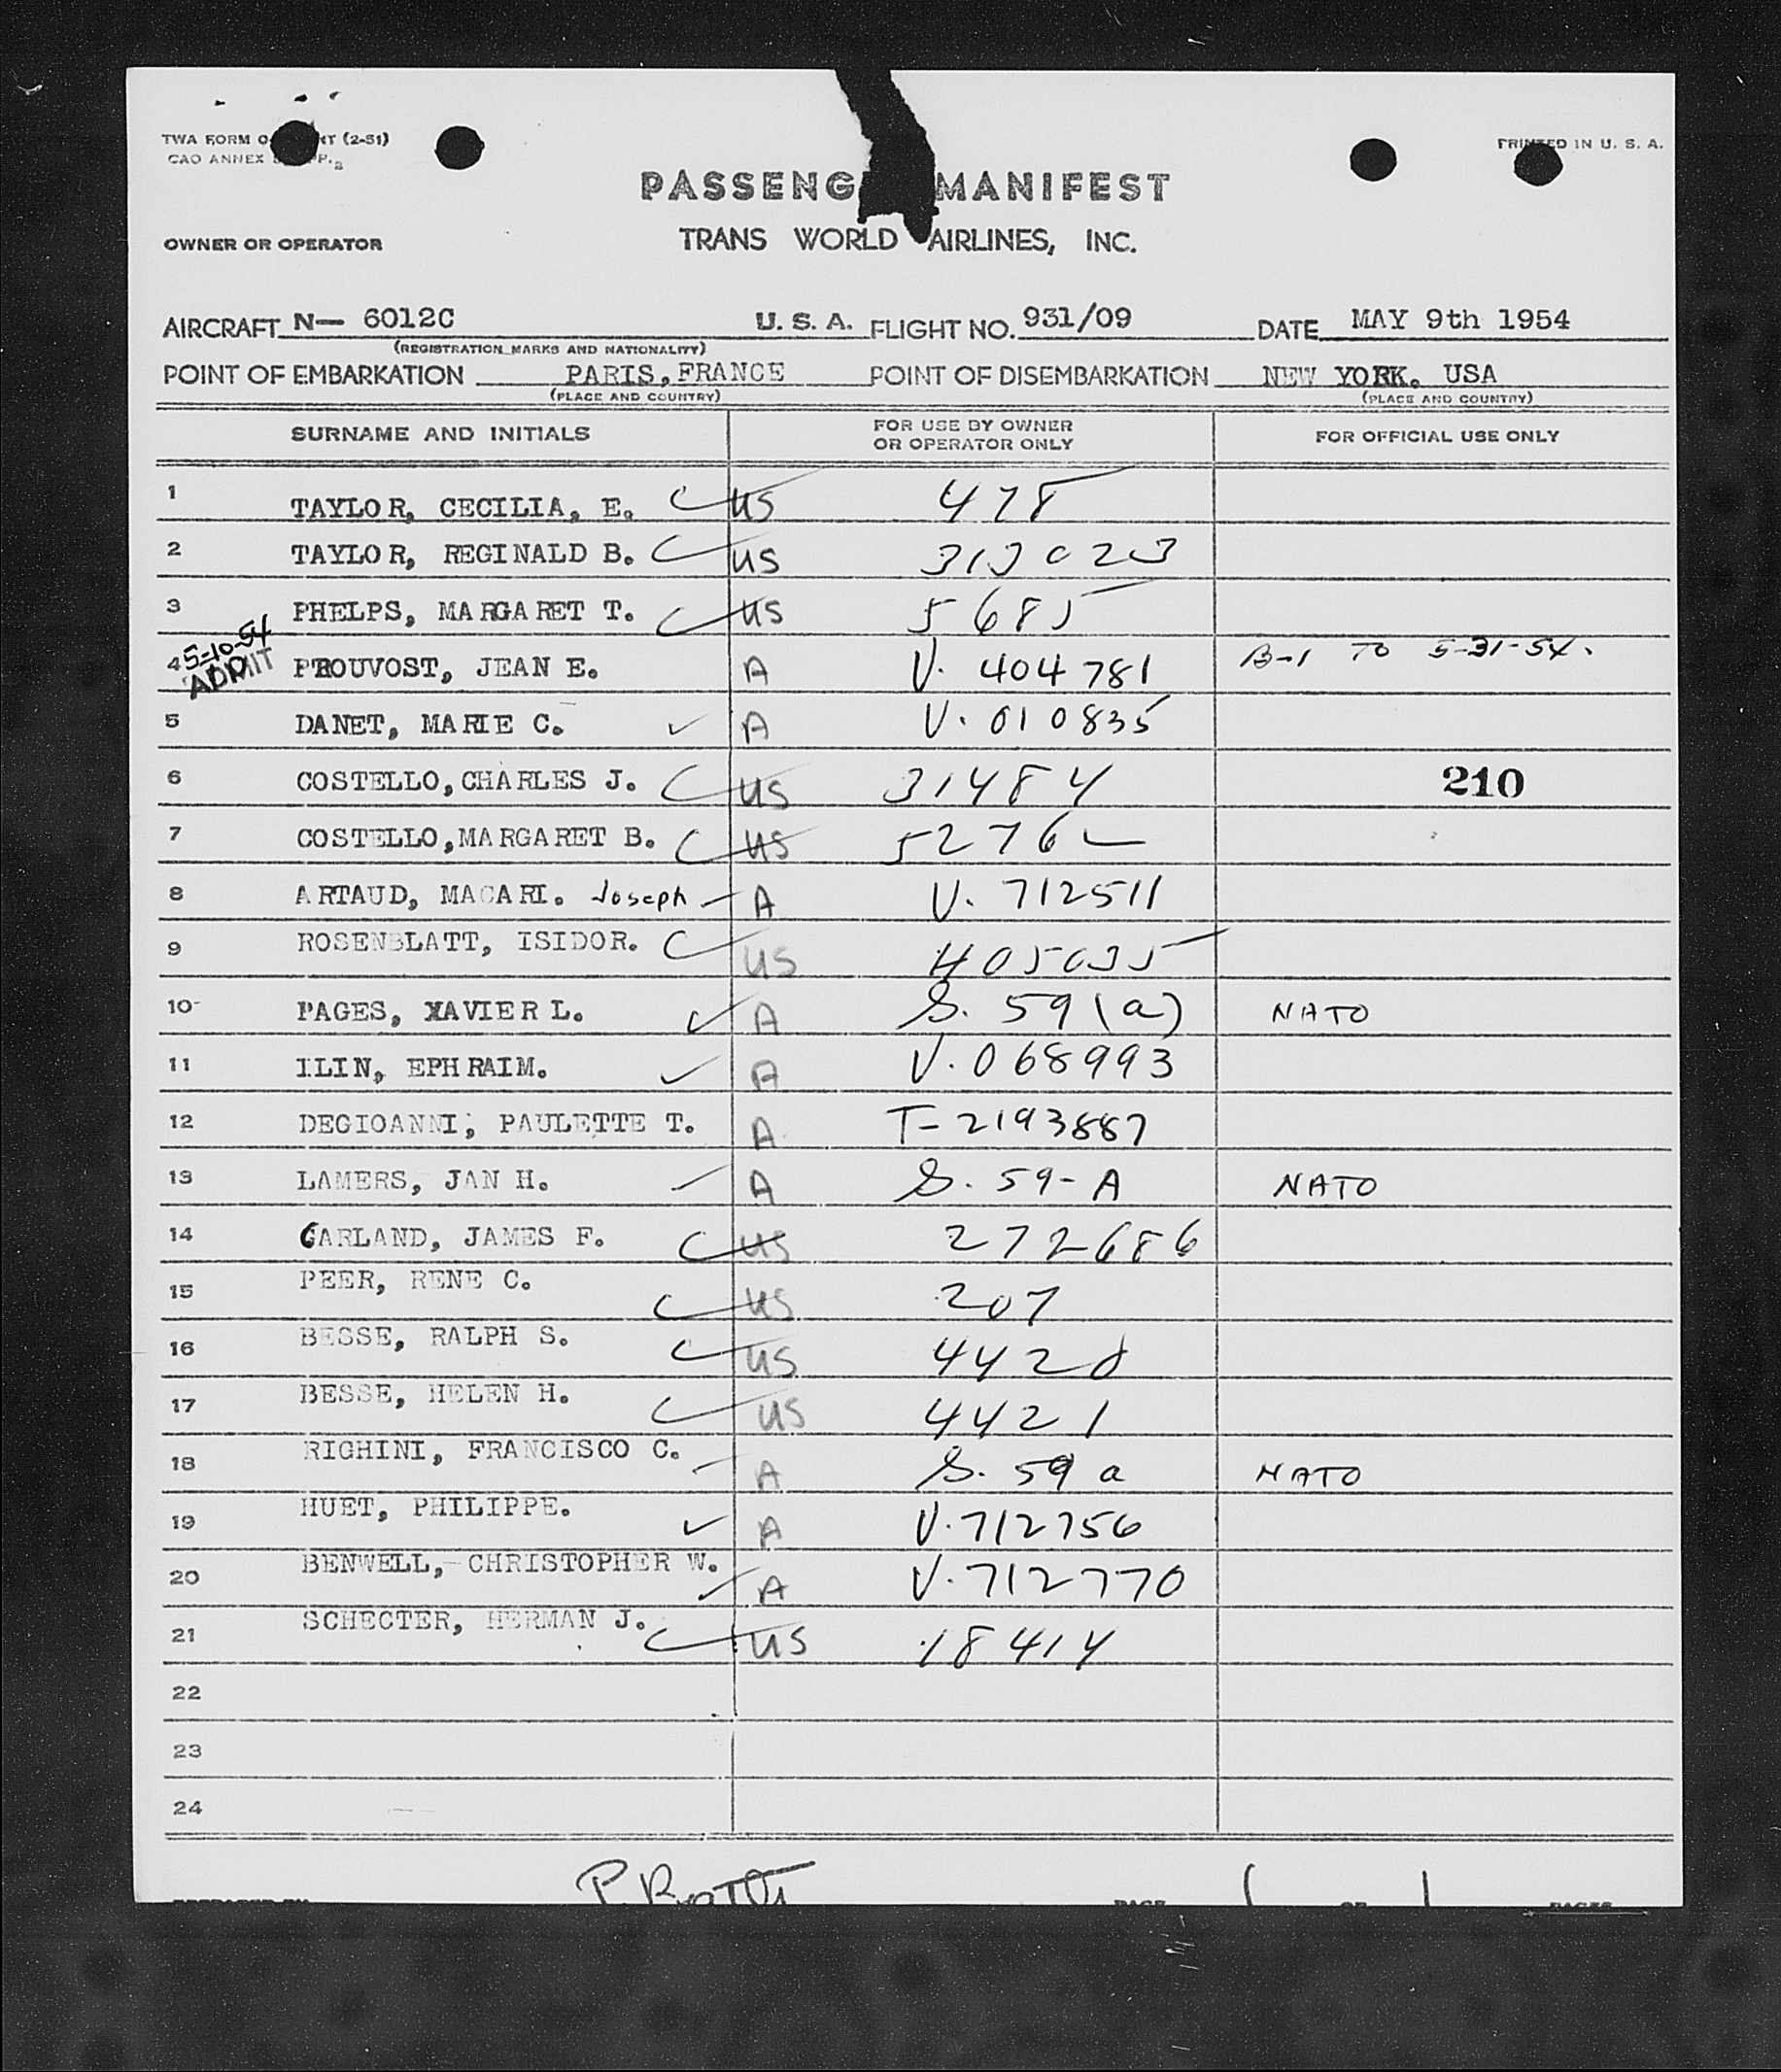 TWA FORM O NT (2-51)
CAO ANNEX PP. 2
PRINTED IN U. S. A.
PASSENG MANIFEST
OWNER OR OPERATOR
TRANS WORLD AIRLINES, INC.
AIRCRAFT N— 6012C U. S. A. FLIGHT NO. 931/09 DATE MAY 9th 1954
(REGISTRATION MARKS AND NATIONALITY)
POINT OF EMBARKATION PARIS, FRANCE POINT OF DISEMBARKATION NEW YORK. USA
(PLACE AND COUNTRY) (PLACE AND COUNTRY)
SURNAME AND INITIALS FOR USE BY OWNER OR OPERATOR ONLY FOR OFFICIAL USE ONLY
1 TAYLOR, CECILIA, E. US 478
2 TAYLOR, REGINALD B. US 313023
3 PHELPS, MARGARET T. US 5685
5-10-54
ADMIT
4 PROUVOST, JEAN E. A V. 404781 B-1 TO 5-31-54.
5 DANET, MARIE C. A V. 010835
6 COSTELLO, CHARLES J. US 31484 210
7 COSTELLO, MARGARET B. US 52762
8 ARTAUD, MACARI. Joseph A V. 712511
9 ROSENBLATT, ISIDOR. US 405035
10 PAGES, XAVIER L. A S. 59 (a) NATO
11 ILIN, EPHRAIM. A V. 068993
12 DEGIOANNI, PAULETTE T. A T-2193887
13 LAMERS, JAN H. A S. 59-A NATO
14 GARLAND, JAMES F. US 272686
15 PEER, RENE C. US 207
16 BESSE, RALPH S. US 4420
17 BESSE, HELEN H. US 4421
18 RIGHINI, FRANCISCO C. A S. 59 a NATO
19 HUET, PHILIPPE. A V. 712756
20 BENWELL, CHRISTOPHER W. A V. 712770
21 SCHECTER, HERMAN J. US 18414
22
23
24
PREPARED BY PAGE 1 OF 1 PAGES